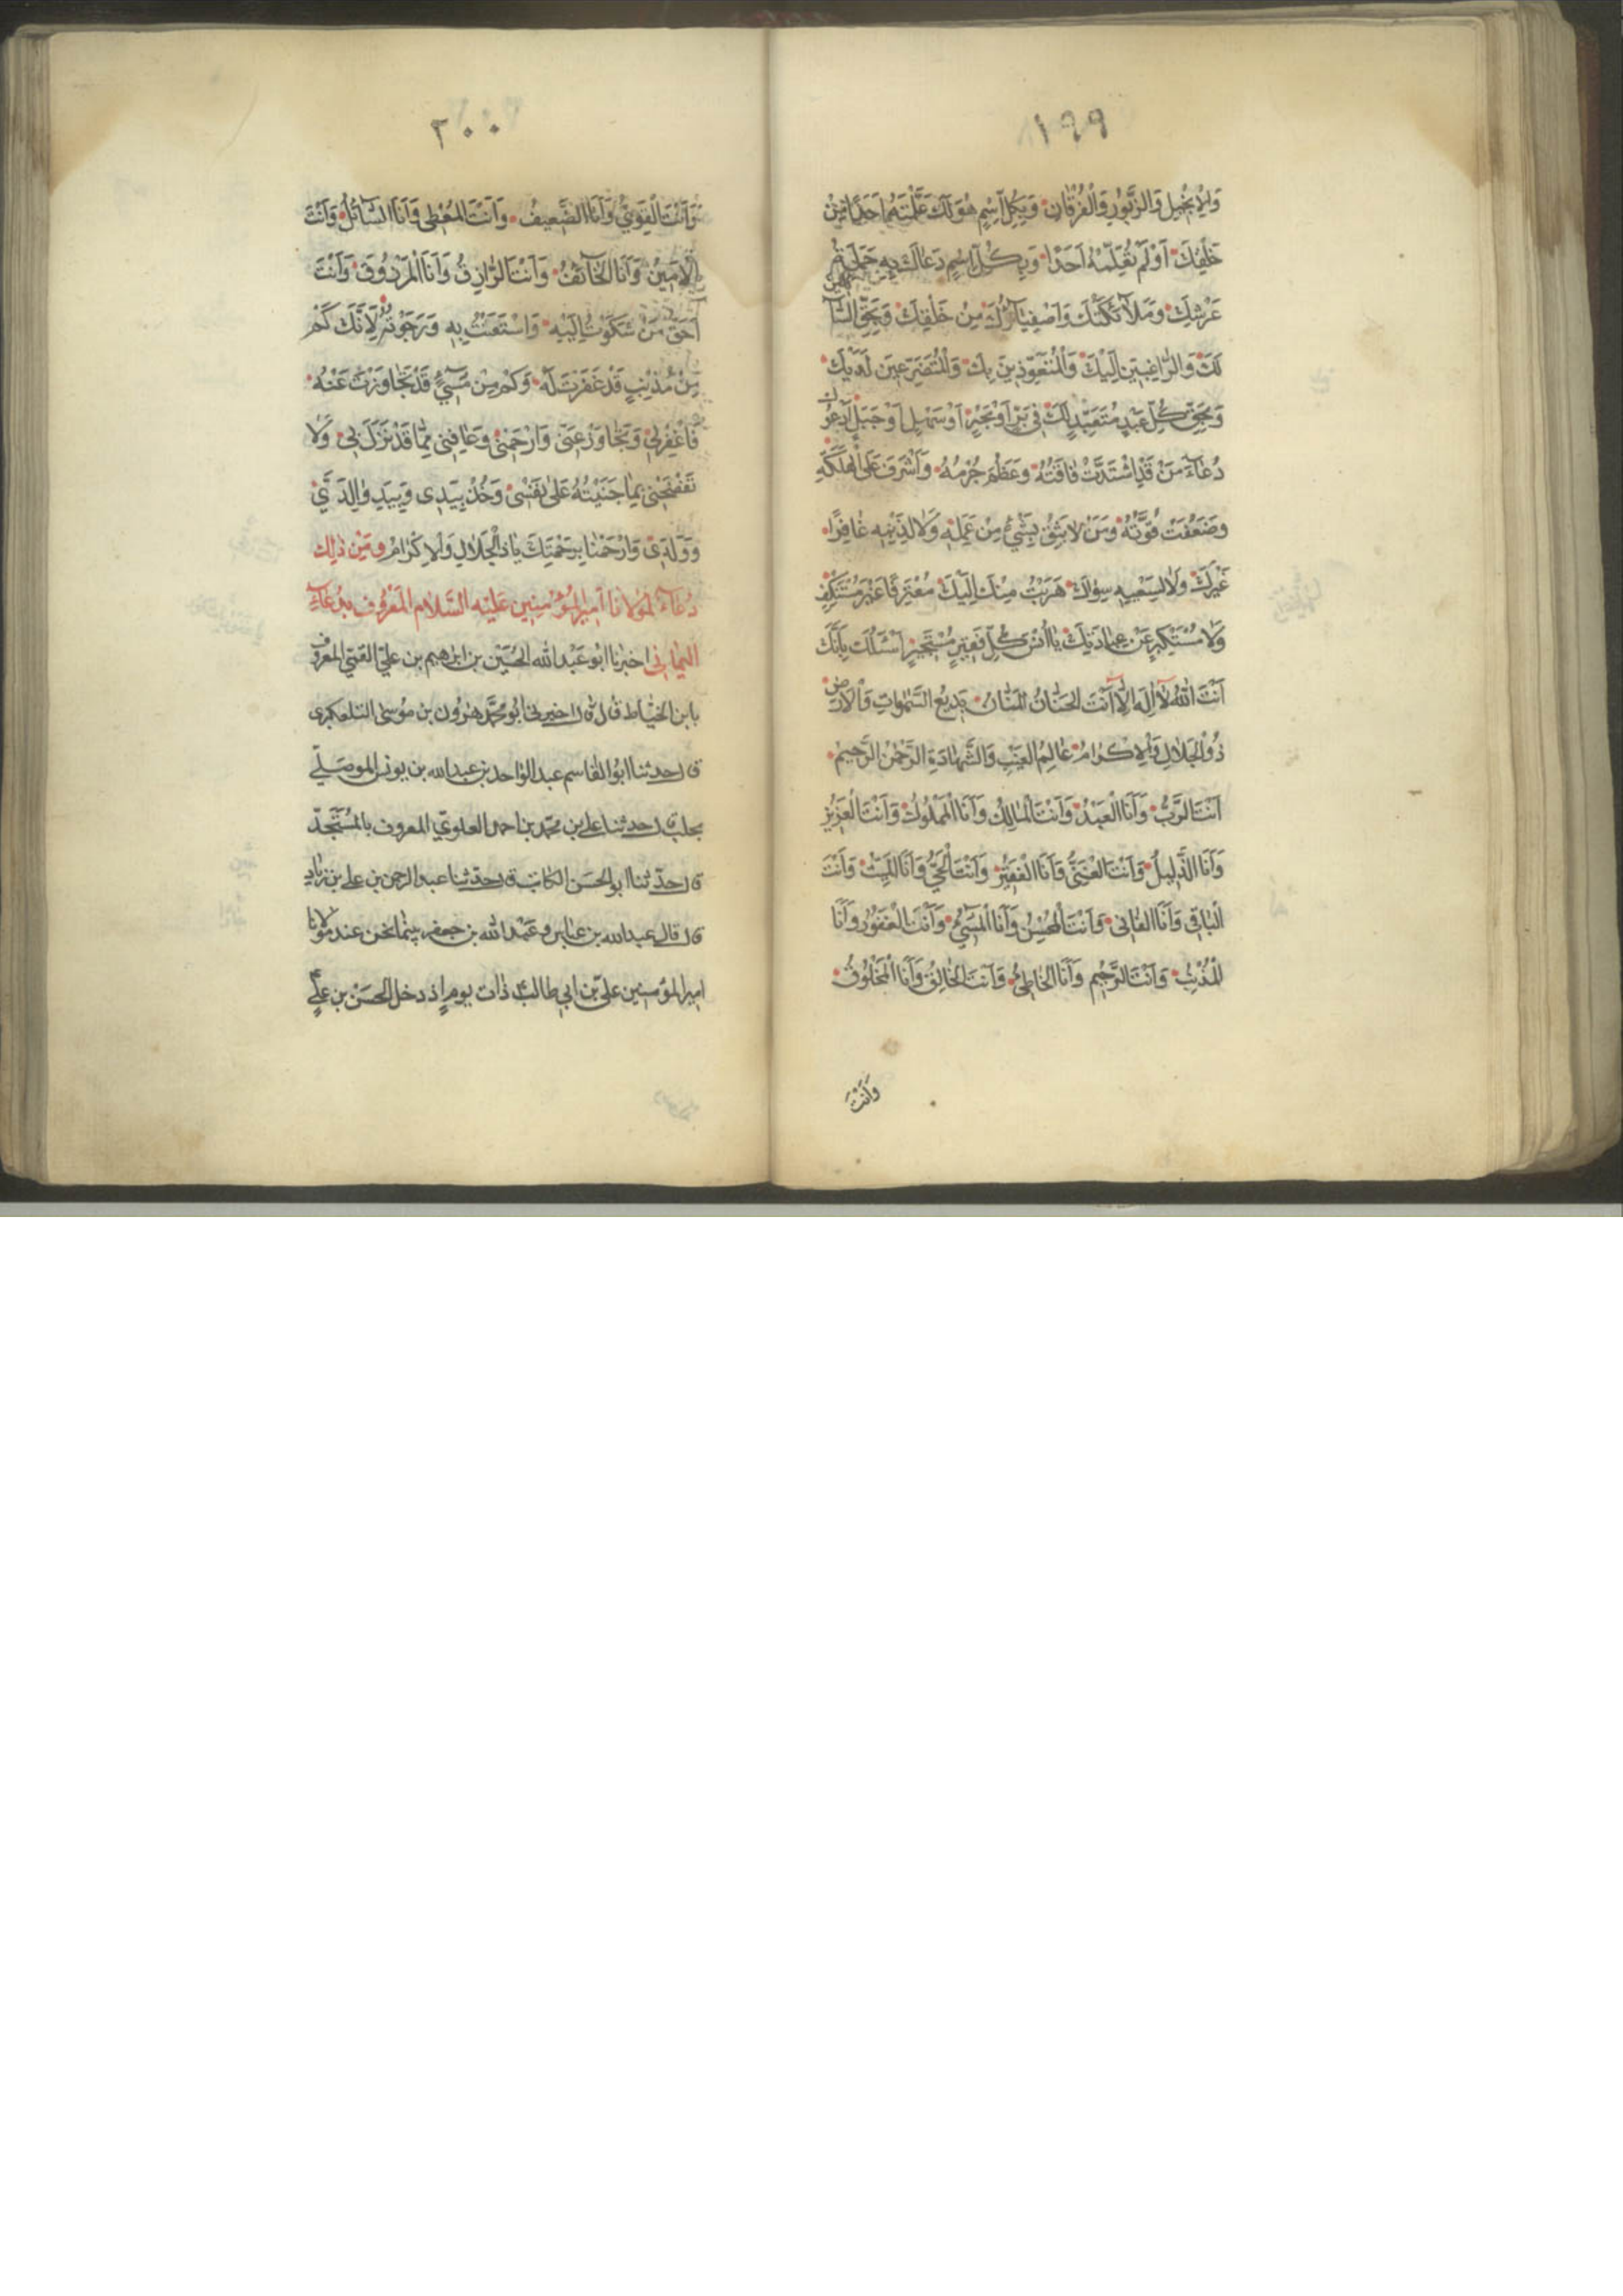 ١٩٩
وَالْاِنْجِيلِ وَالزَّبُورِ وَالْفُرْقَانِ وَبِكُلِّ اسْمٍ هُوَ لَكَ عَلَّمْتَهُ اَحَدًا مِنْ
خَلْقِكَ اَوْ لَمْ تُعَلِّمْهُ اَحَدًا وَبِكُلِّ اسْمٍ دَعَاكَ بِهِ حَمَلَةُ
عَرْشِكَ وَمَلَآئِكَتُكَ وَاَصْفِيَآؤُكَ مِنْ خَلْقِكَ وَبِحَقِّ السَّآئلين
لَكَ وَالرَّاغِبِينَ اِلَيْكَ وَالْمُتَعَوِّذِينَ بِكَ وَالْمُتَضَرِّعِينَ لَدَيْكَ
وَبِحَقِّ كُلِّ عَبْدٍ مُتَعَبِّدٍ لَكَ فِي بَرٍّ اَوْ بَحْرٍ اَوْ سَهْلٍ اَوْ جَبَلٍ اَدْعُوك
دُعَآءَ مَنْ قَدِ اشْتَدَّتْ فَاقَتُهُ وَعَظُمَ جُرْمُهُ وَاَشْرَفَ عَلَى الْهَلَكَةِ
وَضَعُفَتْ قُوَّتُهُ وَمَنْ لَا يَثِقُ بِشَيْءٍ مِنْ عَمَلِهِ وَلَا لِذَنْبِهِ غَافِرًا
غَيْرَكَ وَلَا لِسَعْيِهِ سِوَاكَ هَرَبْتُ مِنْكَ اِلَيْكَ مُعْتَرِفًا غَيْرَ مُسْتَنْكِفٍ
وَلَا مُسْتَكْبِرٍ عَنْ عِبَادَتِكَ يَا اُنْسَ كُلِّ فَقِيرٍ مُسْتَجِيرٍ اَسْئَلُكَ بِاَنَّكَ
اَنْتَ اللهُ لَا اِلَهَ اِلَّا اَنْتَ الْحَنَّانُ الْمَنَّانُ بَدِيعُ السَّمَوَاتِ وَالْاَرْضِ
ذُو الْجَلَالِ وَالْاِكْرَامِ عَالِمُ الْغَيْبِ وَالشَّهَادَةِ الرَّحْمٰنُ الرَّحِيمُ
اَنْتَ الرَّبُّ وَاَنَا الْعَبْدُ وَاَنْتَ الْمَالِكُ وَاَنَا الْمَمْلُوكُ وَاَنْتَ الْعَزِيزُ
وَاَنَا الذَّلِيلُ وَاَنْتَ الْغَنِيُّ وَاَنَا الْفَقِيرُ وَاَنْتَ الْحَيُّ وَاَنَا الْمَيِّتُ وَاَنْتَ
الْبَاقِي وَاَنَا الْفَانِي وَاَنْتَ الْمُحْسِنُ وَاَنَا الْمُسِيْءُ وَاَنْتَ الْغَفُورُ وَاَنَا
الْمُذْنِبُ وَاَنْتَ الرَّحِيمُ وَاَنَا الْخَاطِئُ وَاَنْتَ الْخَالِقُ وَاَنَا الْمَخْلُوقُ
وَاَنْتَ
٢٠٠
وَاَنْتَ الْقَوِيُّ وَاَنَا الضَّعِيفُ وَاَنْتَ الْمُعْطِي وَاَنَا السَّآئِلُ وَاَنْتَ
الْاَمِينُ وَاَنَا الْخَآئِفُ وَاَنْتَ الرَّازِقُ وَاَنَا الْمَرْزُوقُ وَاَنْتَ
اَحَقُّ مَنْ شَكَوْتُ اِلَيْهِ وَاسْتَعَنْتُ بِهِ وَرَجَوْتُهُ لِاَنَّكَ كَمْ
مِنْ مُذْنِبٍ قَدْ غَفَرْتَ لَهُ وَكَمْ مِنْ مُسِيْءٍ قَدْ تَجَاوَزْتَ عَنْهُ
فَاغْفِرْ لِي وَتَجَاوَزْ عَنِّي وَارْحَمْنِي وَعَافِنِي مِمَّا قَدْ نَزَلَ بِي وَلَا
تَفْضَحْنِي بِمَا جَنَيْتُهُ عَلَى نَفْسِي وَخُذْ بِيَدِي وَبِيَدِ وَالِدَيَّ
وَوَلَدِي وَارْحَمْنَا بِرَحْمَتِكَ يَا ذَا الْجَلَالِ وَالْاِكْرَامِ وَمِنْ ذٰلِكَ
دُعَآءٌ لِمَوْلَانَا اَمِيرِ الْمُؤْمِنِينَ عَلَيْهِ السَّلَام الْمَعْرُوف بِدُعَآءِ
الْيَمَانِي اخبرنا ابو عَبْد الله الحُسَيْن بن ابراهيم بن عليّ القمّي المعروف
بابن الخيّاط قال اخبرني ابو محمّد هٰرون بن موسى التلعكبرى
قال حدثنا ابو القاسم عبد الواحد بن عبد الله بن يونس الموصلي
بحلب قال حدثنا علي بن محمّد بن احمد العلوي المعروف بالمُسْتَنْجِد
قال حدّثنا ابو الحسَن الكاتب قال حدّثنا عبد الرحمن بن علي بن زياد
قال قال عبد الله بن عبّاس وعَبْد الله بن جعفر بينما نحن عند مولانا
امير المؤمنين عليّ بن ابي طالب ذات يومٍ اذ دخل الحسَن بن عليّ